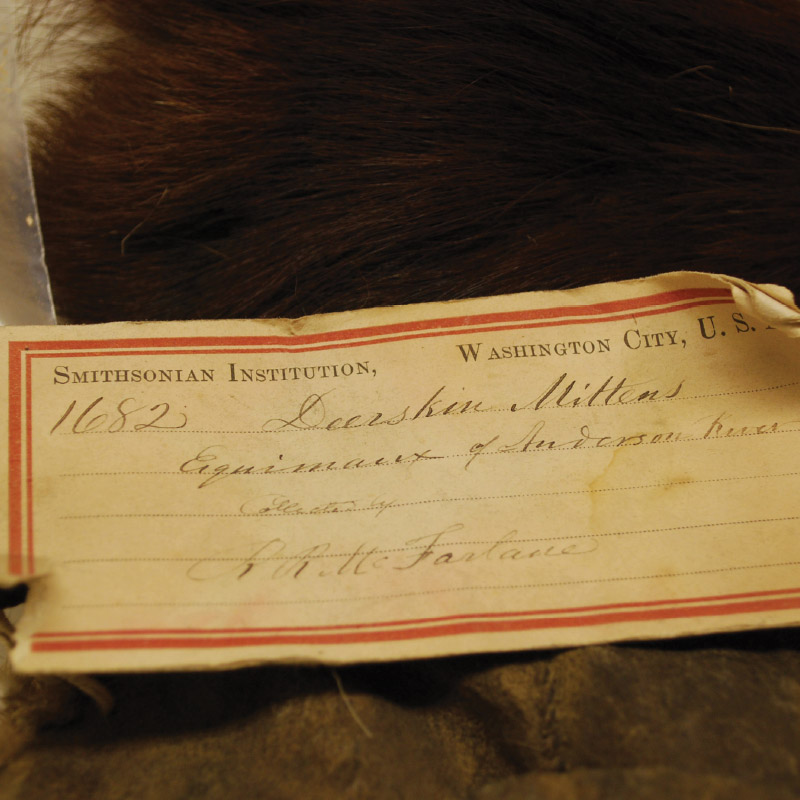 SMITHSONIAN INSTITUTION, WASHINGTON CITY, U. S.
1682 Deerskin Mittens
Equimaux of Anderson River
Collected by
R. R. McFarlane